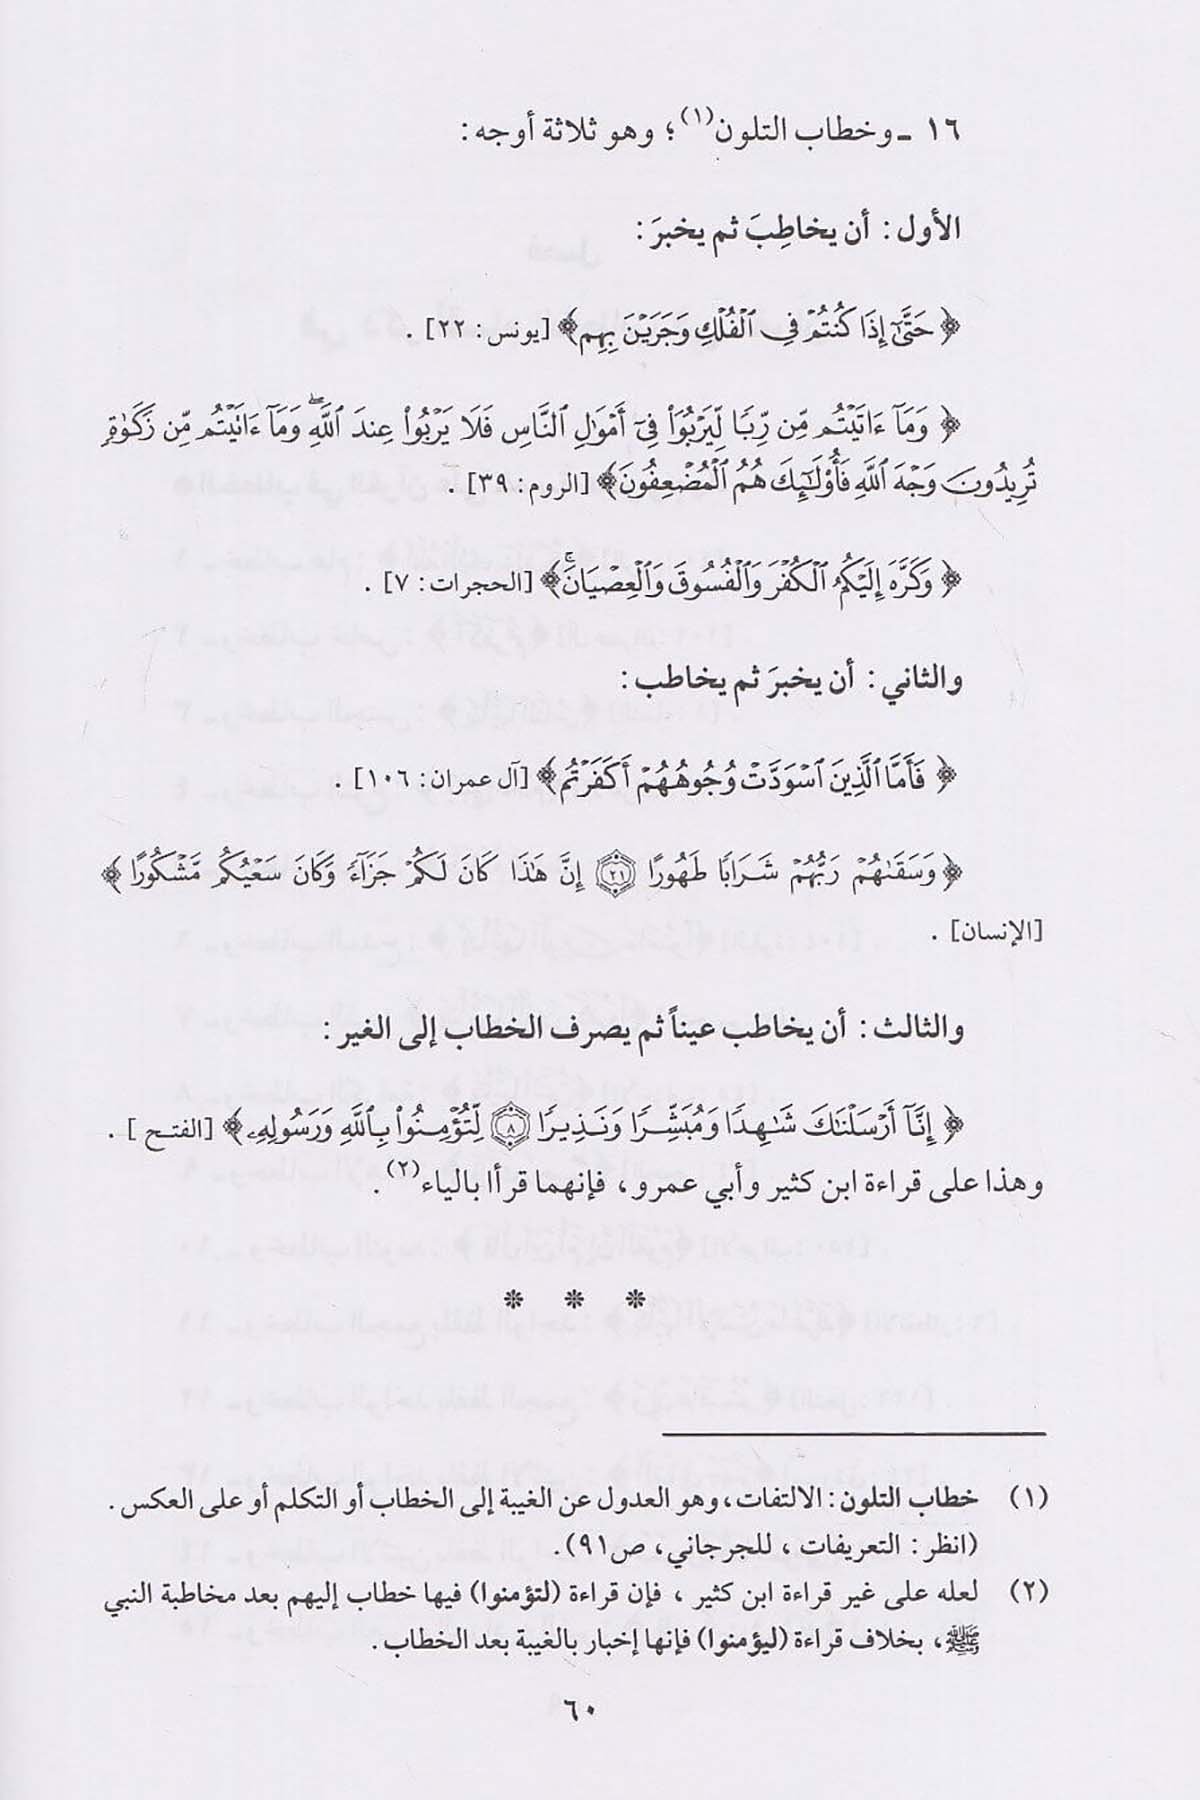 ١٦ ـ وخطاب التلون(١)؛ وهو ثلاثة أوجه:
الأول: أن يخاطِبَ ثم يخبرَ:
﴿حَتَّىٰٓ إِذَا كُنتُمْ فِى ٱلْفُلْكِ وَجَرَيْنَ بِهِم﴾ [يونس: ٢٢].
﴿وَمَآ ءَاتَيْتُم مِّن رِّبًا لِّيَرْبُوَا۟ فِىٓ أَمْوَٰلِ ٱلنَّاسِ فَلَا يَرْبُوا۟ عِندَ ٱللَّهِ ۖ وَمَآ ءَاتَيْتُم مِّن زَكَوٰةٍ
تُرِيدُونَ وَجْهَ ٱللَّهِ فَأُو۟لَٰٓئِكَ هُمُ ٱلْمُضْعِفُونَ﴾ [الروم: ٣٩].
﴿وَكَرَّهَ إِلَيْكُمُ ٱلْكُفْرَ وَٱلْفُسُوقَ وَٱلْعِصْيَانَ ۚ﴾ [الحجرات: ٧].
والثاني: أن يخبرَ ثم يخاطب:
﴿فَأَمَّا ٱلَّذِينَ ٱسْوَدَّتْ وُجُوهُهُمْ أَكَفَرْتُم﴾ [آل عمران: ١٠٦].
﴿وَسَقَىٰهُمْ رَبُّهُمْ شَرَابًا طَهُورًا ٢١ إِنَّ هَٰذَا كَانَ لَكُمْ جَزَآءً وَكَانَ سَعْيُكُم مَّشْكُورًا﴾
[الإنسان].
والثالث: أن يخاطب عيناً ثم يصرف الخطاب إلى الغير:
﴿إِنَّآ أَرْسَلْنَٰكَ شَٰهِدًا وَمُبَشِّرًا وَنَذِيرًا ٨ لِّتُؤْمِنُوا۟ بِٱللَّهِ وَرَسُولِهِۦ﴾ [الفتح].
وهذا على قراءة ابن كثير وأبي عمرو، فإنهما قرأا بالياء(٢).
* * *
(١) خطاب التلون: الالتفات، وهو العدول عن الغيبة إلى الخطاب أو التكلم أو على العكس.
(انظر: التعريفات، للجرجاني، ص٩١).
(٢) لعله على غير قراءة ابن كثير، فإن قراءة (لتؤمنوا) فيها خطاب إليهم بعد مخاطبة النبي
ﷺ، بخلاف قراءة (ليؤمنوا) فإنها إخبار بالغيبة بعد الخطاب.
٦٠